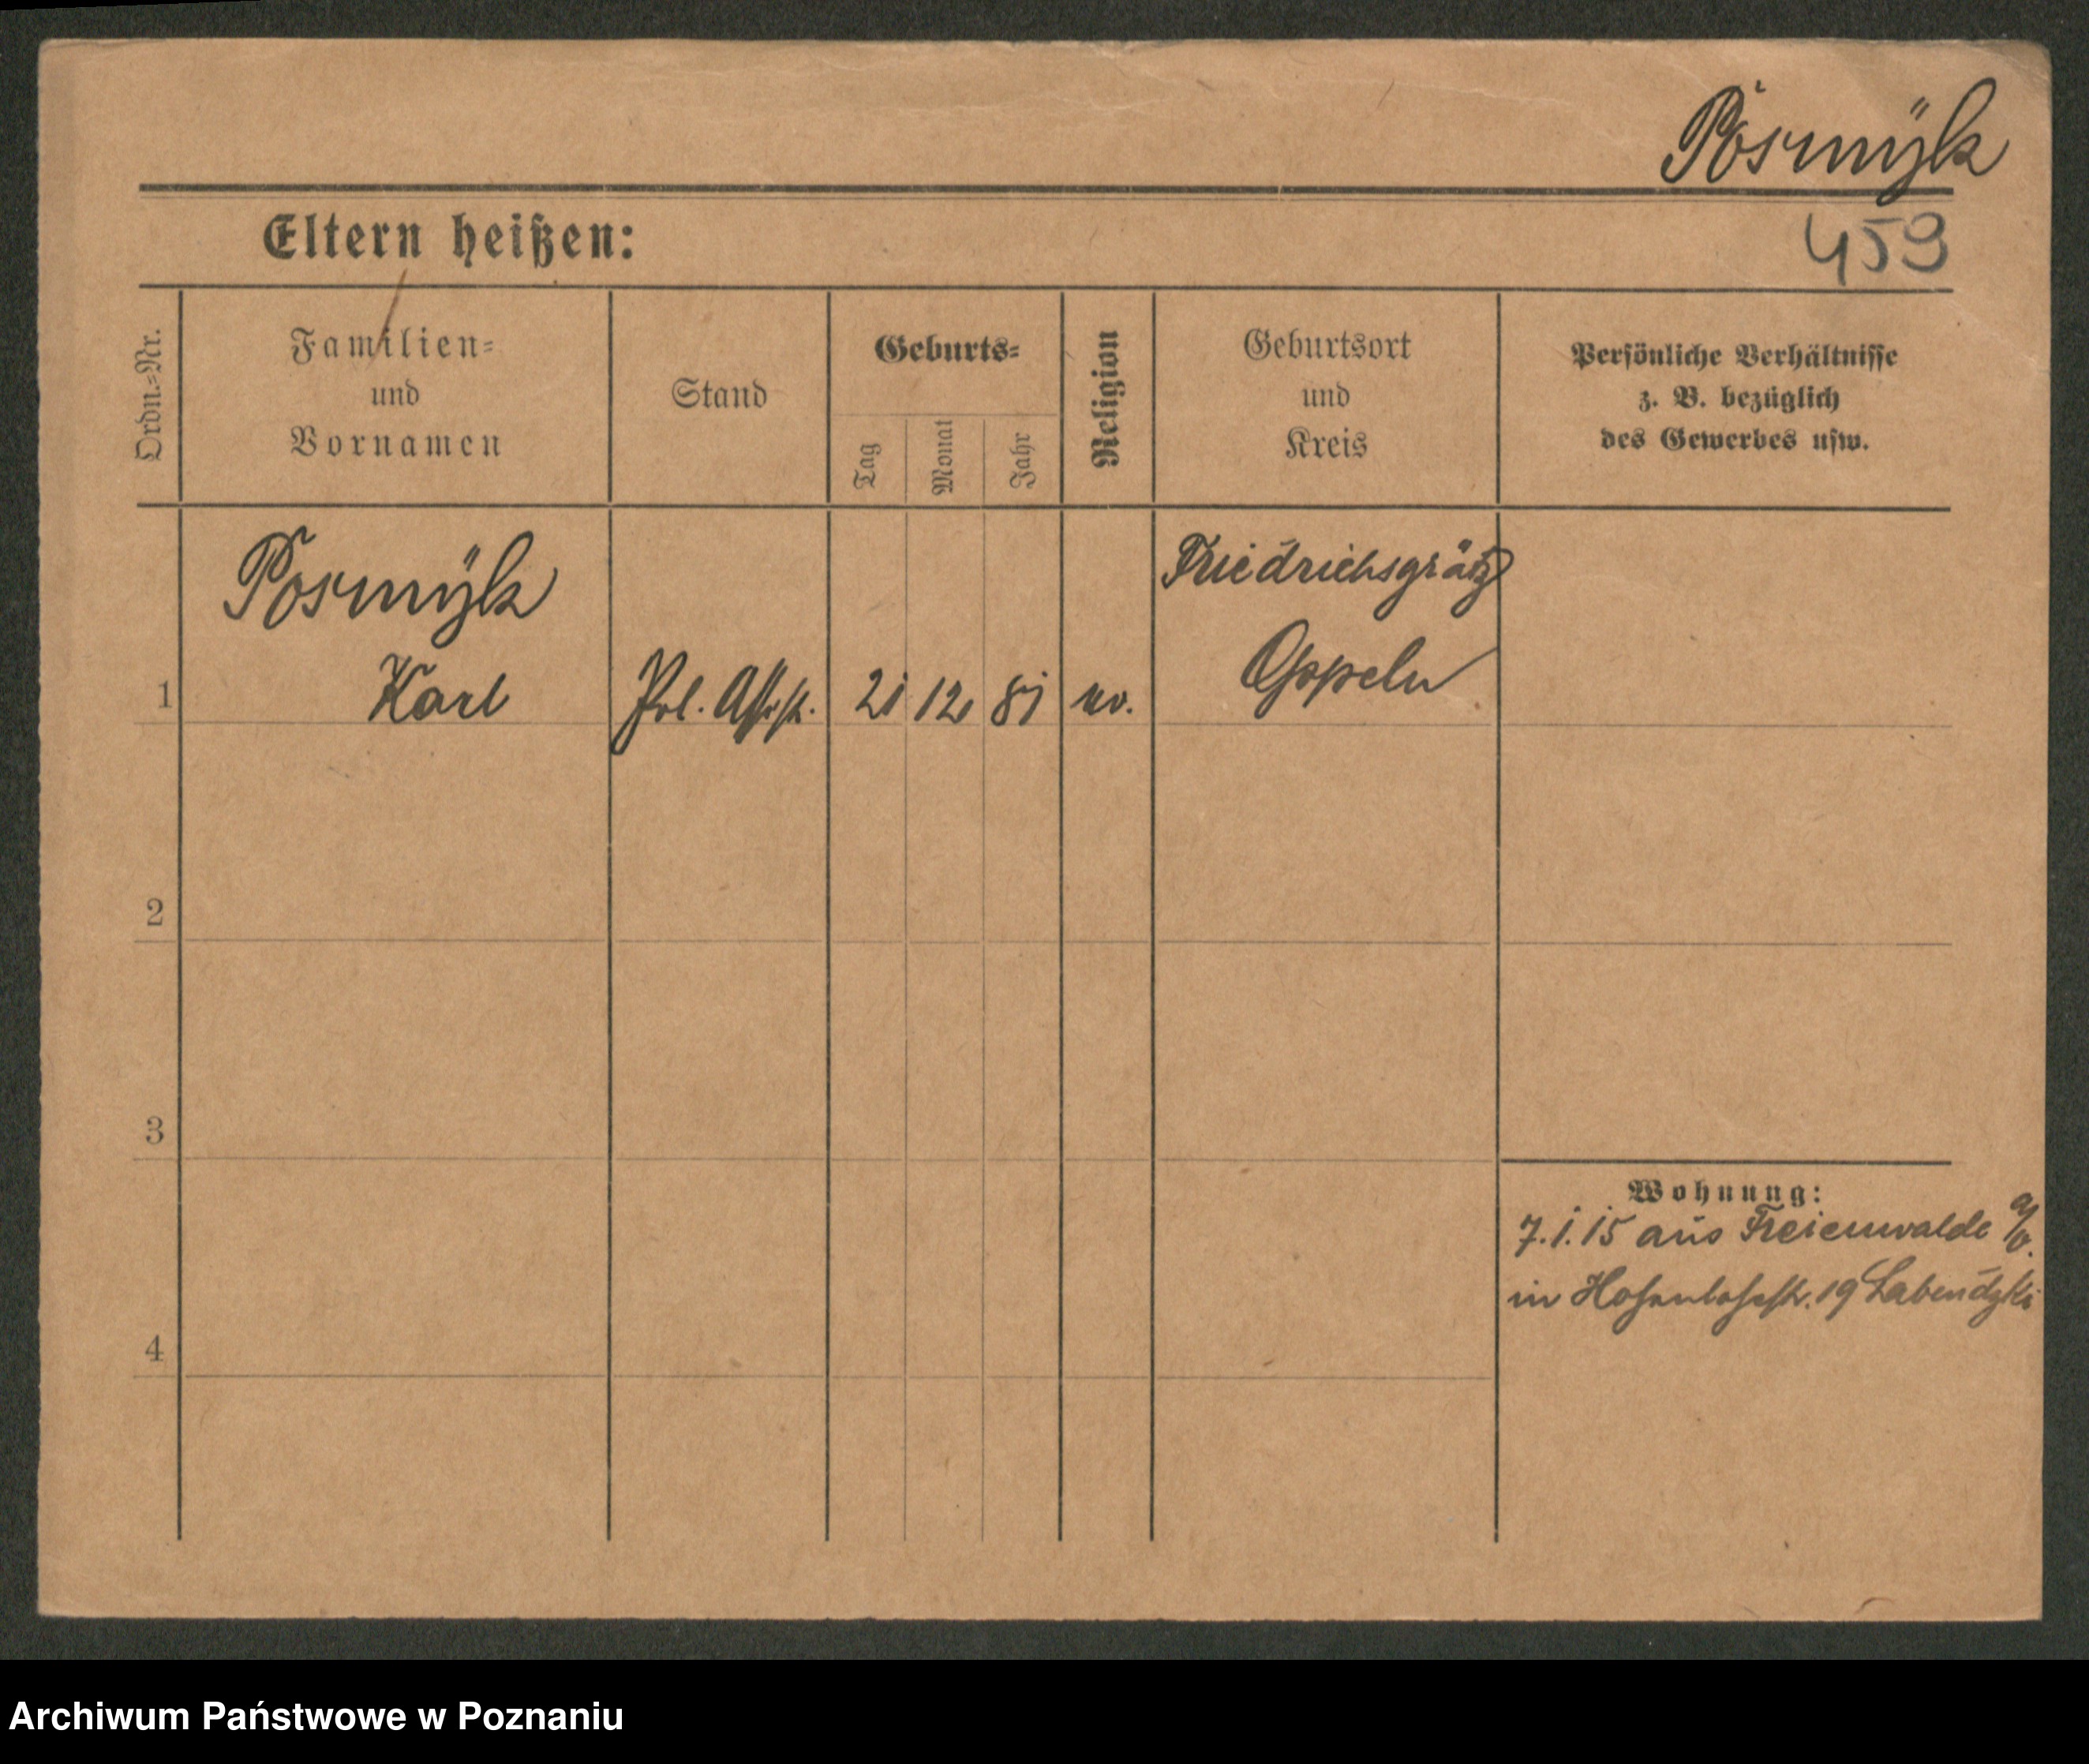 Posmÿk
Eltern heißen:
459
Ordn.=Nr.
Familien=
und
Vornamen
Stand
Geburts=
Tag
Monat
Jahr
Religion
Geburtsort
und
Kreis
Persönliche Verhältnisse
z. B. bezüglich
des Gewerbes usw.
Posmÿk
Friedrichsgrätz
Oppeln
1 Karl Pol. Assist. 21 12 81 ev.
2
3
Wohnung:
7.1.15 aus Freienwalde a/O.
in Hohenlohestr. 19 Labendzki
4
Archiwum Państwowe w Poznaniu